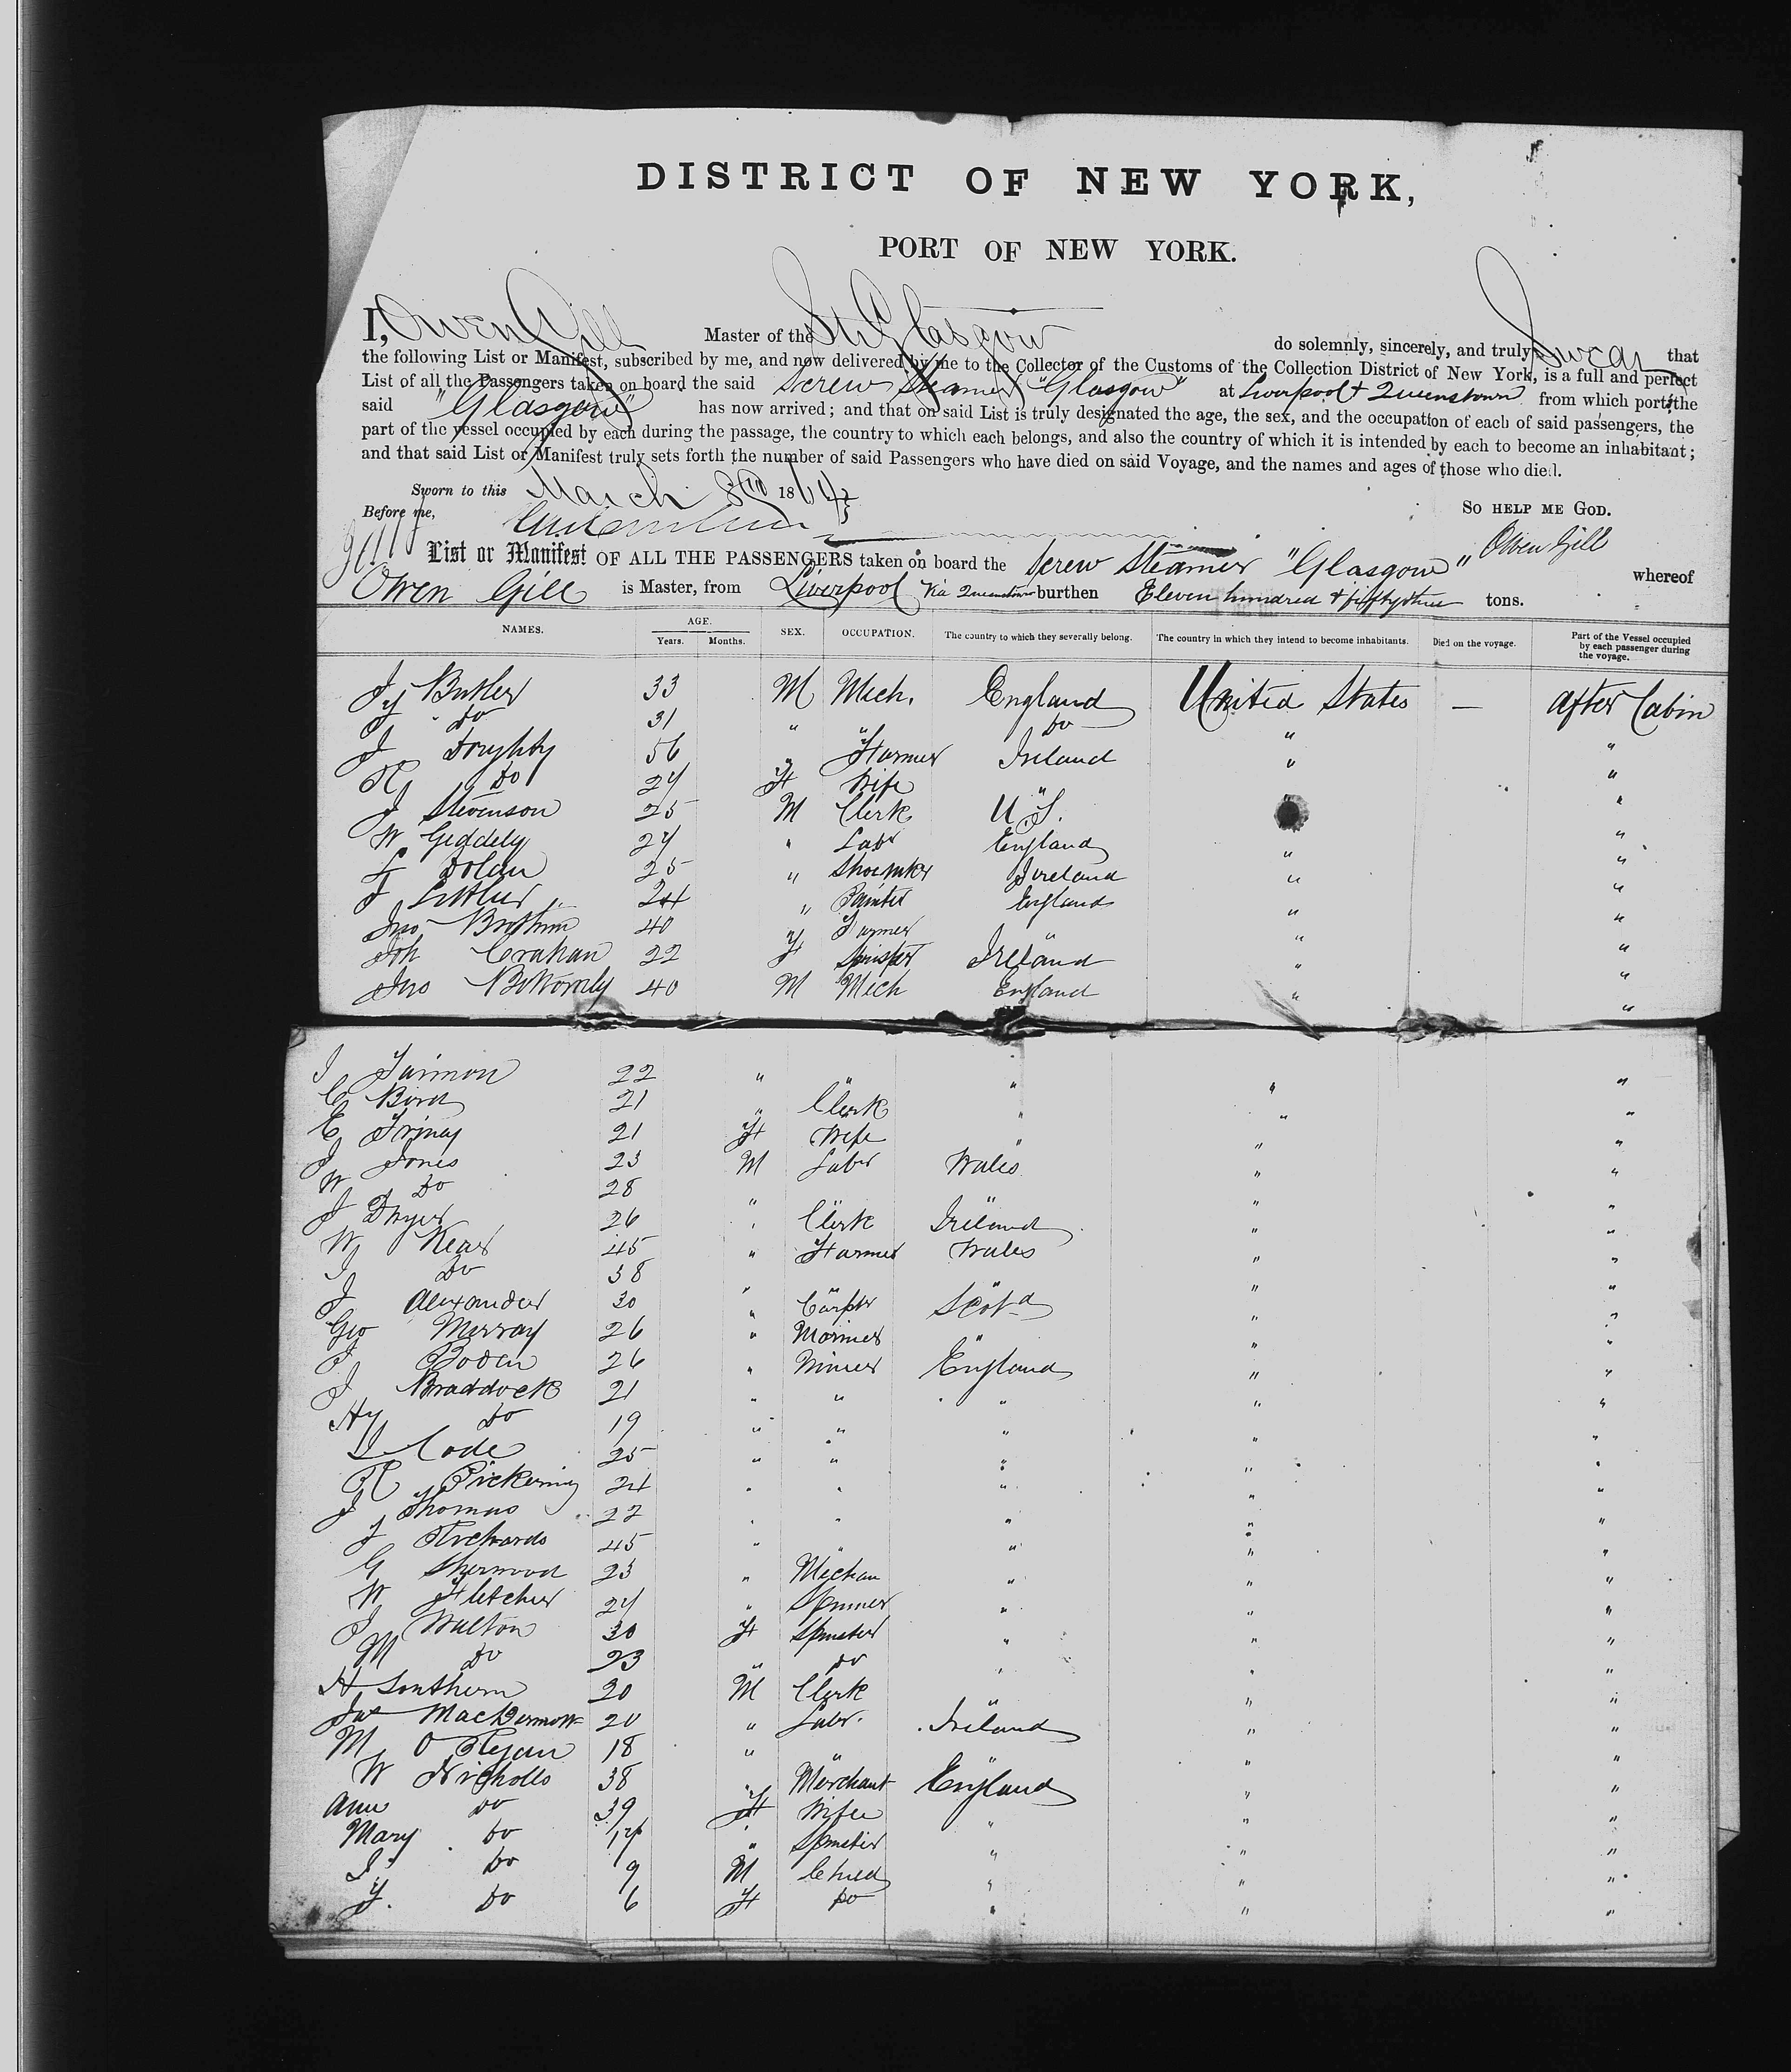 DISTRICT OF NEW YORK,
PORT OF NEW YORK.
I, Owen Gill Master of the Str Glasgow do solemnly, sincerely, and truly Swear that
the following List or Manifest, subscribed by me, and now delivered by me to the Collector of the Customs of the Collection District of New York, is a full and perfect
List of all the Passengers taken on board the said Screw Steamer "Glasgow" at Liverpool & Queenstown from which port the
said "Glasgow" has now arrived; and that on said List is truly designated the age, the sex, and the occupation of each of said passengers, the
part of the vessel occupied by each during the passage, the country to which each belongs, and also the country of which it is intended by each to become an inhabitant;
and that said List or Manifest truly sets forth the number of said Passengers who have died on said Voyage, and the names and ages of those who died.
Sworn to this March 8th 1864
So HELP ME GOD.
Before me,
Owen Gill
List or Manifest OF ALL THE PASSENGERS taken on board the Screw Steamer "Glasgow" whereof
Owen Gill is Master, from Liverpool via Queenstown burthen Eleven hundred & fiftythree tons.
NAMES. AGE. Years. Months. SEX. OCCUPATION. The country to which they severally belong. The country in which they intend to become inhabitants. Died on the voyage. Part of the Vessel occupied by each passenger during the voyage.
Butler 33 M Mech. England United States — After Cabin
Do 31 " " Do " "
J Doughty 56 " Farmer Ireland " "
Do 24 F Wife " "
J Stevenson 25 M Clerk U.S. " "
W Geddely 24 " Labr England " "
Dolan 25 " Shoemker Ireland " "
J Littler 24 " Painter England " "
Jno 40 " Farmer " " "
Joh Crahan 22 F Spinster Ireland " "
Jno Bottomly 40 M Mech England " "
22 " " " " "
C Bird 21 " Clerk " " "
E 21 F Wife " " "
J Jones 23 M Labr Wales " "
W Do 28 " " " " "
J Dwyer 26 " Clerk Ireland " "
W Kear 45 " Farmer Wales " "
J Do 38 " " " " "
J Alexander 30 " Carpter Scotd " "
Geo Murray 26 " Mariner " " "
J Boden 26 " Miner England " "
J Braddock 21 " " " " "
Hy Do 19 " " " " "
J Code 25 " " " " "
R Pickering 24 " " " " "
J Thomas 22 " " " " "
J Richards 45 " " " " "
G Sherwood 23 " Mechan " " "
W Fletcher 24 " Spinner " " "
J Walton 30 F Spinster " " "
M Do 23 " Do " " "
H Southern 20 M Clerk " " "
Jas MacDermott 20 " Labr. Ireland " "
M O Regan 18 " " " " "
W Nicholls 38 " Merchant England " "
Ann Do 39 F Wife " " "
Mary Do 14 " Spinster " " "
J Do 9 M Child " " "
F. Do 6 F Do " " "